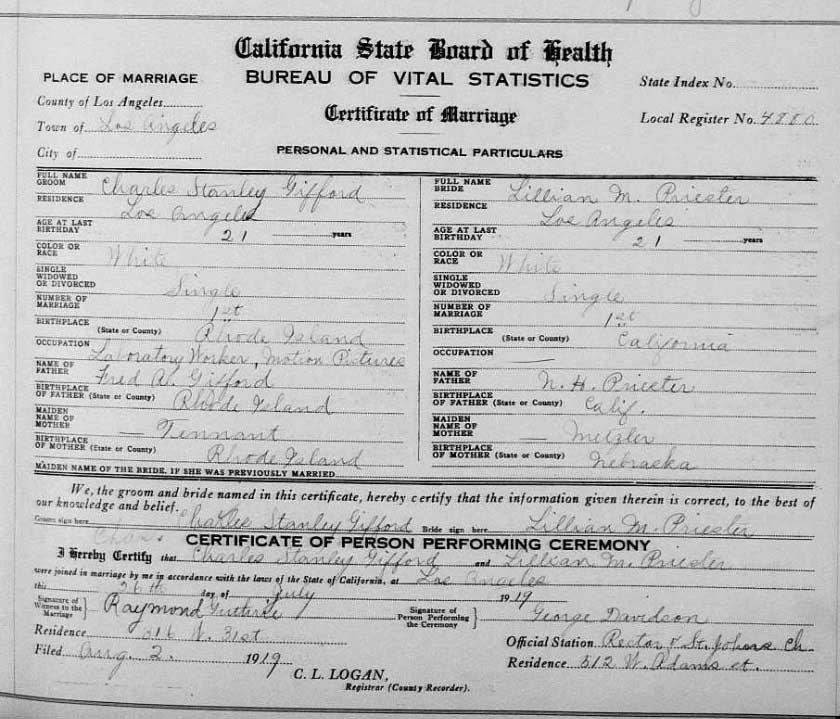 California State Board of Health
PLACE OF MARRIAGE
BUREAU OF VITAL STATISTICS
State Index No.
County of Los Angeles
Certificate of Marriage
Local Register No. 4880
Town of Los Angeles
City of
PERSONAL AND STATISTICAL PARTICULARS
FULL NAME GROOM Charles Stanley Gifford
RESIDENCE Los Angeles
AGE AT LAST BIRTHDAY 21 years
COLOR OR RACE White
SINGLE WIDOWED OR DIVORCED Single
NUMBER OF MARRIAGE 1st
BIRTHPLACE (State or County) Rhode Island
OCCUPATION Laboratory Worker, Motion Pictures
NAME OF FATHER Fred A. Gifford
BIRTHPLACE OF FATHER (State or County) Rhode Island
MAIDEN NAME OF MOTHER — Tennant
BIRTHPLACE OF MOTHER (State or County) Rhode Island
MAIDEN NAME OF THE BRIDE, IF SHE WAS PREVIOUSLY MARRIED
FULL NAME BRIDE Lillian M. Priester
RESIDENCE Los Angeles
AGE AT LAST BIRTHDAY 21 years
COLOR OR RACE White
SINGLE WIDOWED OR DIVORCED Single
NUMBER OF MARRIAGE 1st
BIRTHPLACE (State or County) California
OCCUPATION —
NAME OF FATHER N. H. Priester
BIRTHPLACE OF FATHER (State or County) Calif.
MAIDEN NAME OF MOTHER — Metzler
BIRTHPLACE OF MOTHER (State or County) Nebraska
We, the groom and bride named in this certificate, hereby certify that the information given therein is correct, to the best of
our knowledge and belief.
Groom sign here Charles Stanley Gifford Bride sign here Lillian M. Priester
CERTIFICATE OF PERSON PERFORMING CEREMONY
I Hereby Certify that Charles Stanley Gifford and Lillian M. Priester
were joined in marriage by me in accordance with the laws of the State of California, at Los Angeles
this 26th day of July 1919
Signature of Witness to the Marriage } Raymond Guthrie
Signature of Person Performing the Ceremony } George Davidson
Residence 316 W. 31st
Official Station Rector of St. Johns Ch.
Filed Aug. 2. 1919
Residence 512 W. Adams st.
C. L. LOGAN,
Registrar (County Recorder).